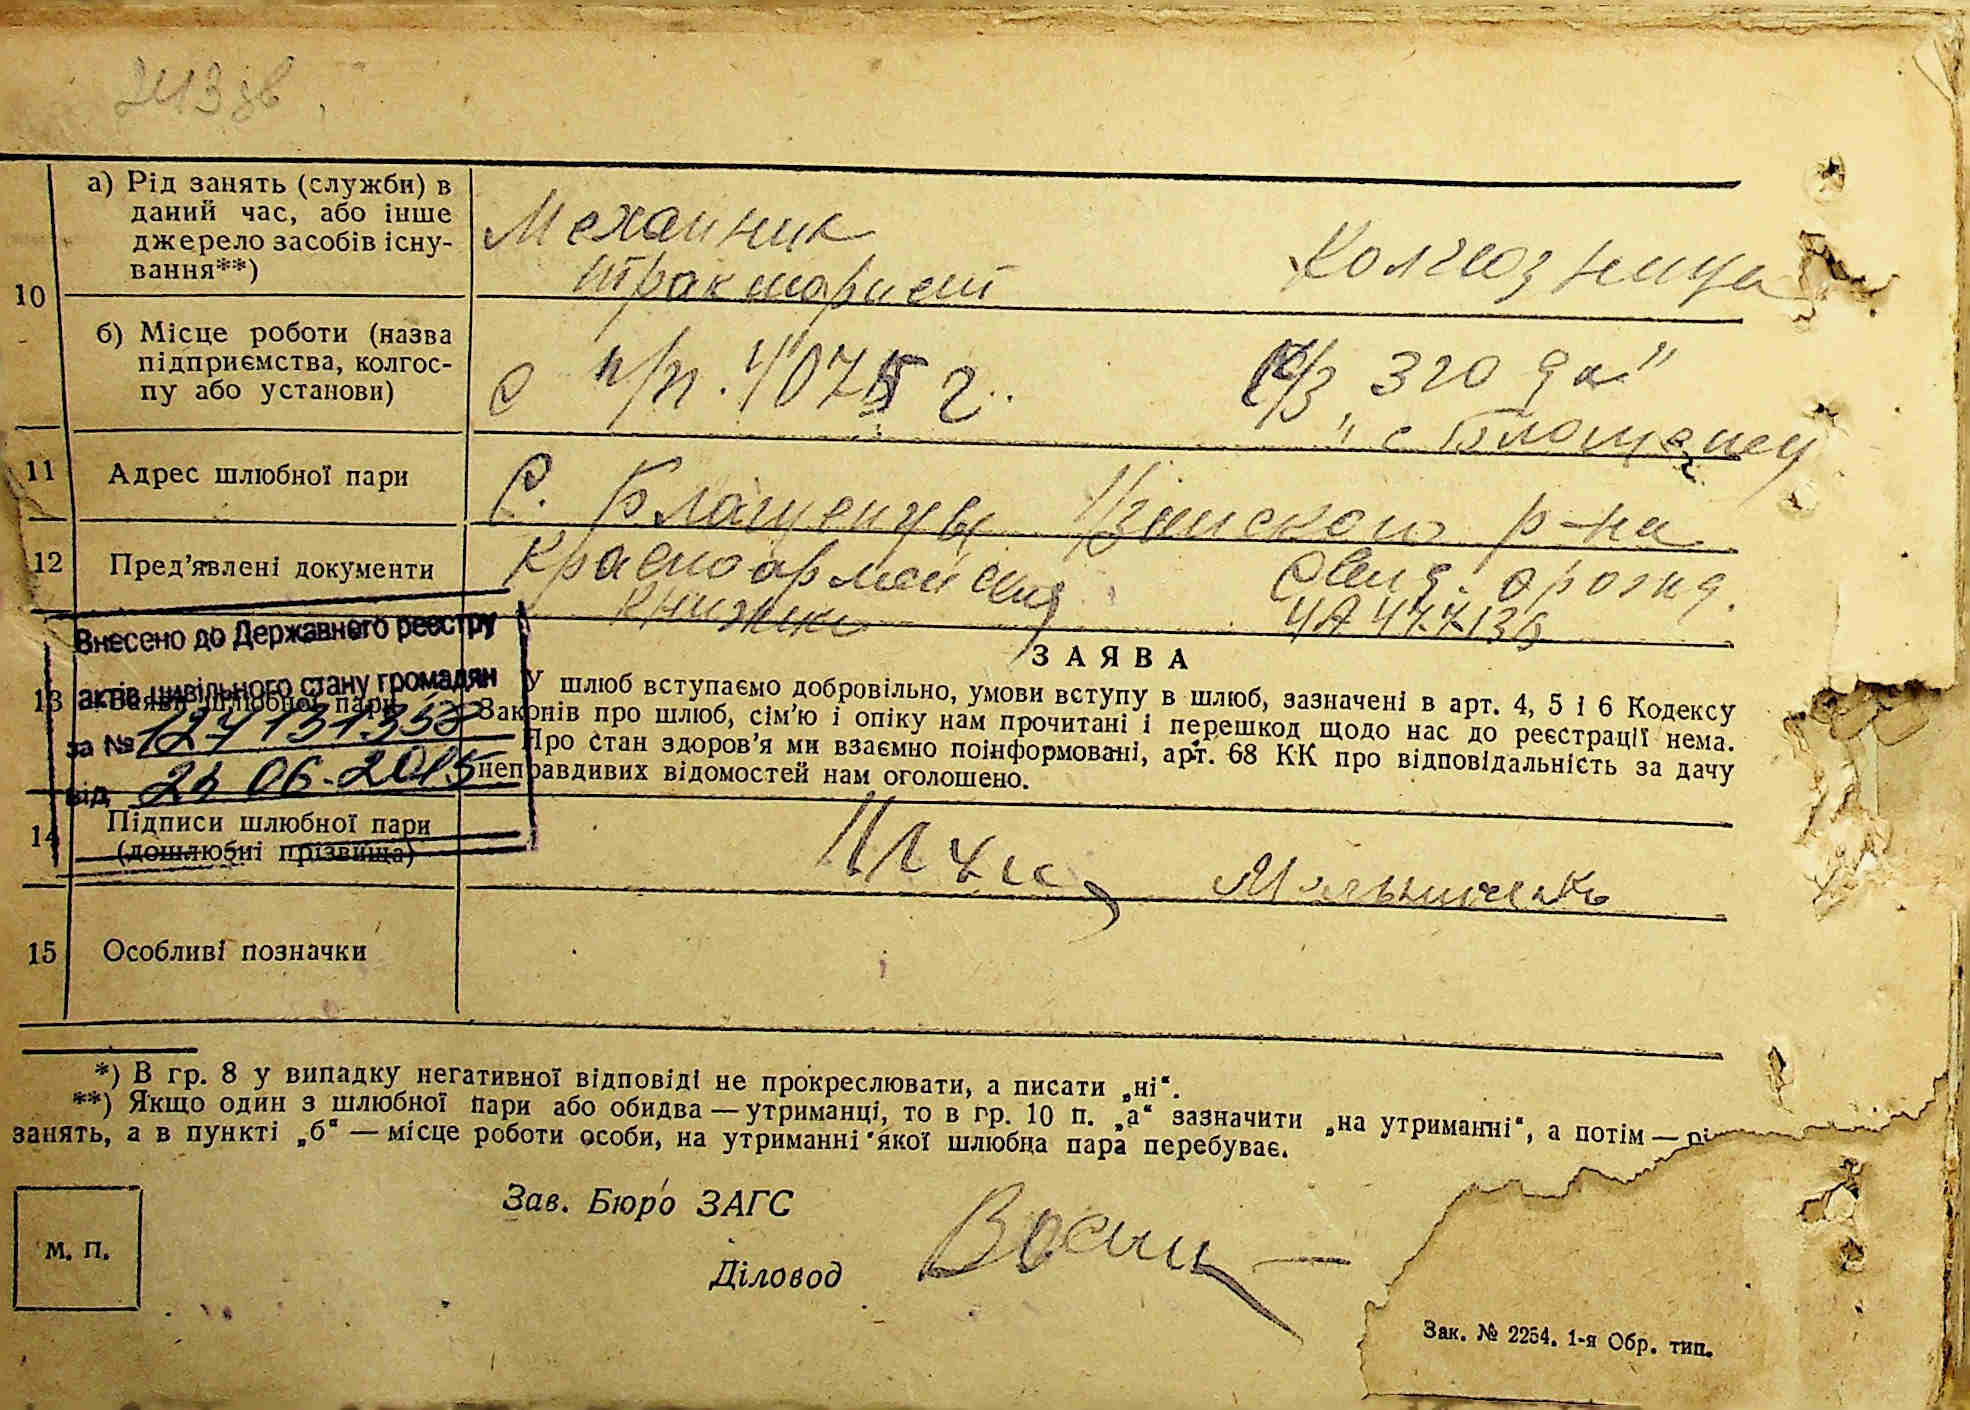 243 зв
а) Рід занять (служби) в
даний час, або інше
джерело засобів існу-
вання**)
Механник
тракторист
Колгозница
10
б) Місце роботи (назва
підприємства, колгос-
пу або установи)
с п/п. 4075 г.
К/з „320 да"
11
Адрес шлюбної пари
С. Блощенцы Узинского р-на
12
Пред’явлені документи
Красноармейская
книжка
Свид. о рожд.
ЧА 477136
Внесено до Державного реєстру
актів цивільного стану громадян
за № 127131358
від 2015
13
Заява шлюбної пари
ЗАЯВА
У шлюб вступаємо добровільно, умови вступу в шлюб, зазначені в арт. 4, 5 і 6 Кодексу
Законів про шлюб, сім’ю і опіку нам прочитані і перешкод щодо нас до реєстрації нема.
Про стан здоров’я ми взаємно поінформовані, арт. 68 КК про відповідальність за дачу
неправдивих відомостей нам оголошено.
14
Підписи шлюбної пари
(дошлюбні прізвища)
15
Особливі позначки
*) В гр. 8 у випадку негативної відповіді не прокреслювати, а писати „ні“.
**) Якщо один з шлюбної пари або обидва — утриманці, то в гр. 10 п. „а“ зазначити „на утриманні“, а потім —
занять, а в пункті „б“ — місце роботи особи, на утриманні якої шлюбна пара перебуває.
Зав. Бюро ЗАГС
М. П.
Діловод
Зак. № 2254. 1-я Обр. тип.